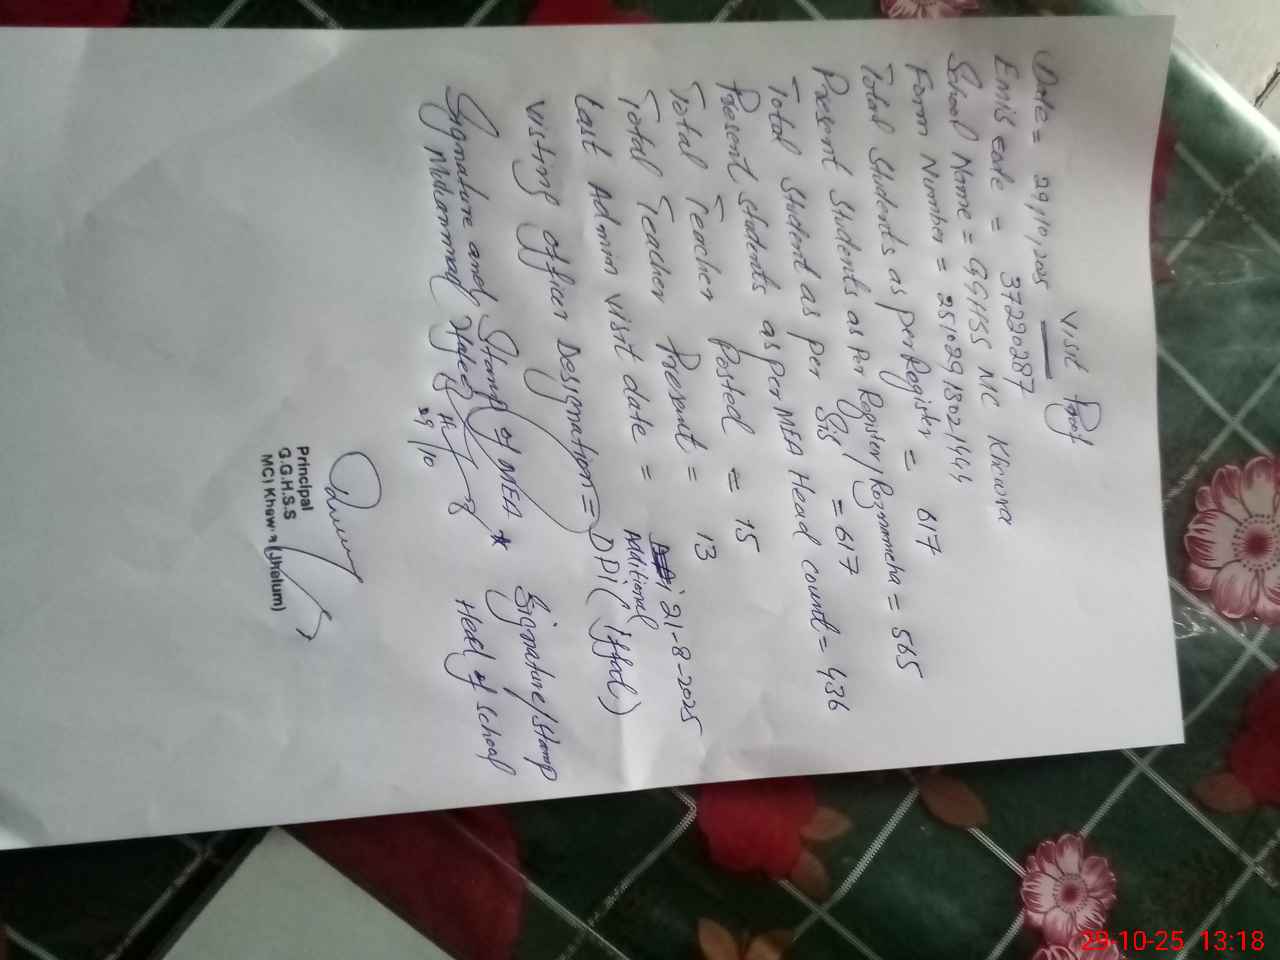 Visit Proof
Date = 29/10/2025
Emis code = 37220287
School Name = GGHSS MC Khewra
Form Number = 25102918021444
Total Students as per Register = 617
Present Students as Per Register/Roznamcha = 565
Total Student as per Sis = 617
Present Students as per MEA Head count = 436
Total Teacher Posted = 15
Total Teacher Present = 13
Last Admin visit date = 21-8-2025
Visting officer Designation = Additional DPI (
Signature and Stamp of MEA *
Signature/Stamp
Head of school
Muhammad
29/10
Principal
G.G.H.S.S
MC Khewra (Jhelum)
29-10-25 13:18